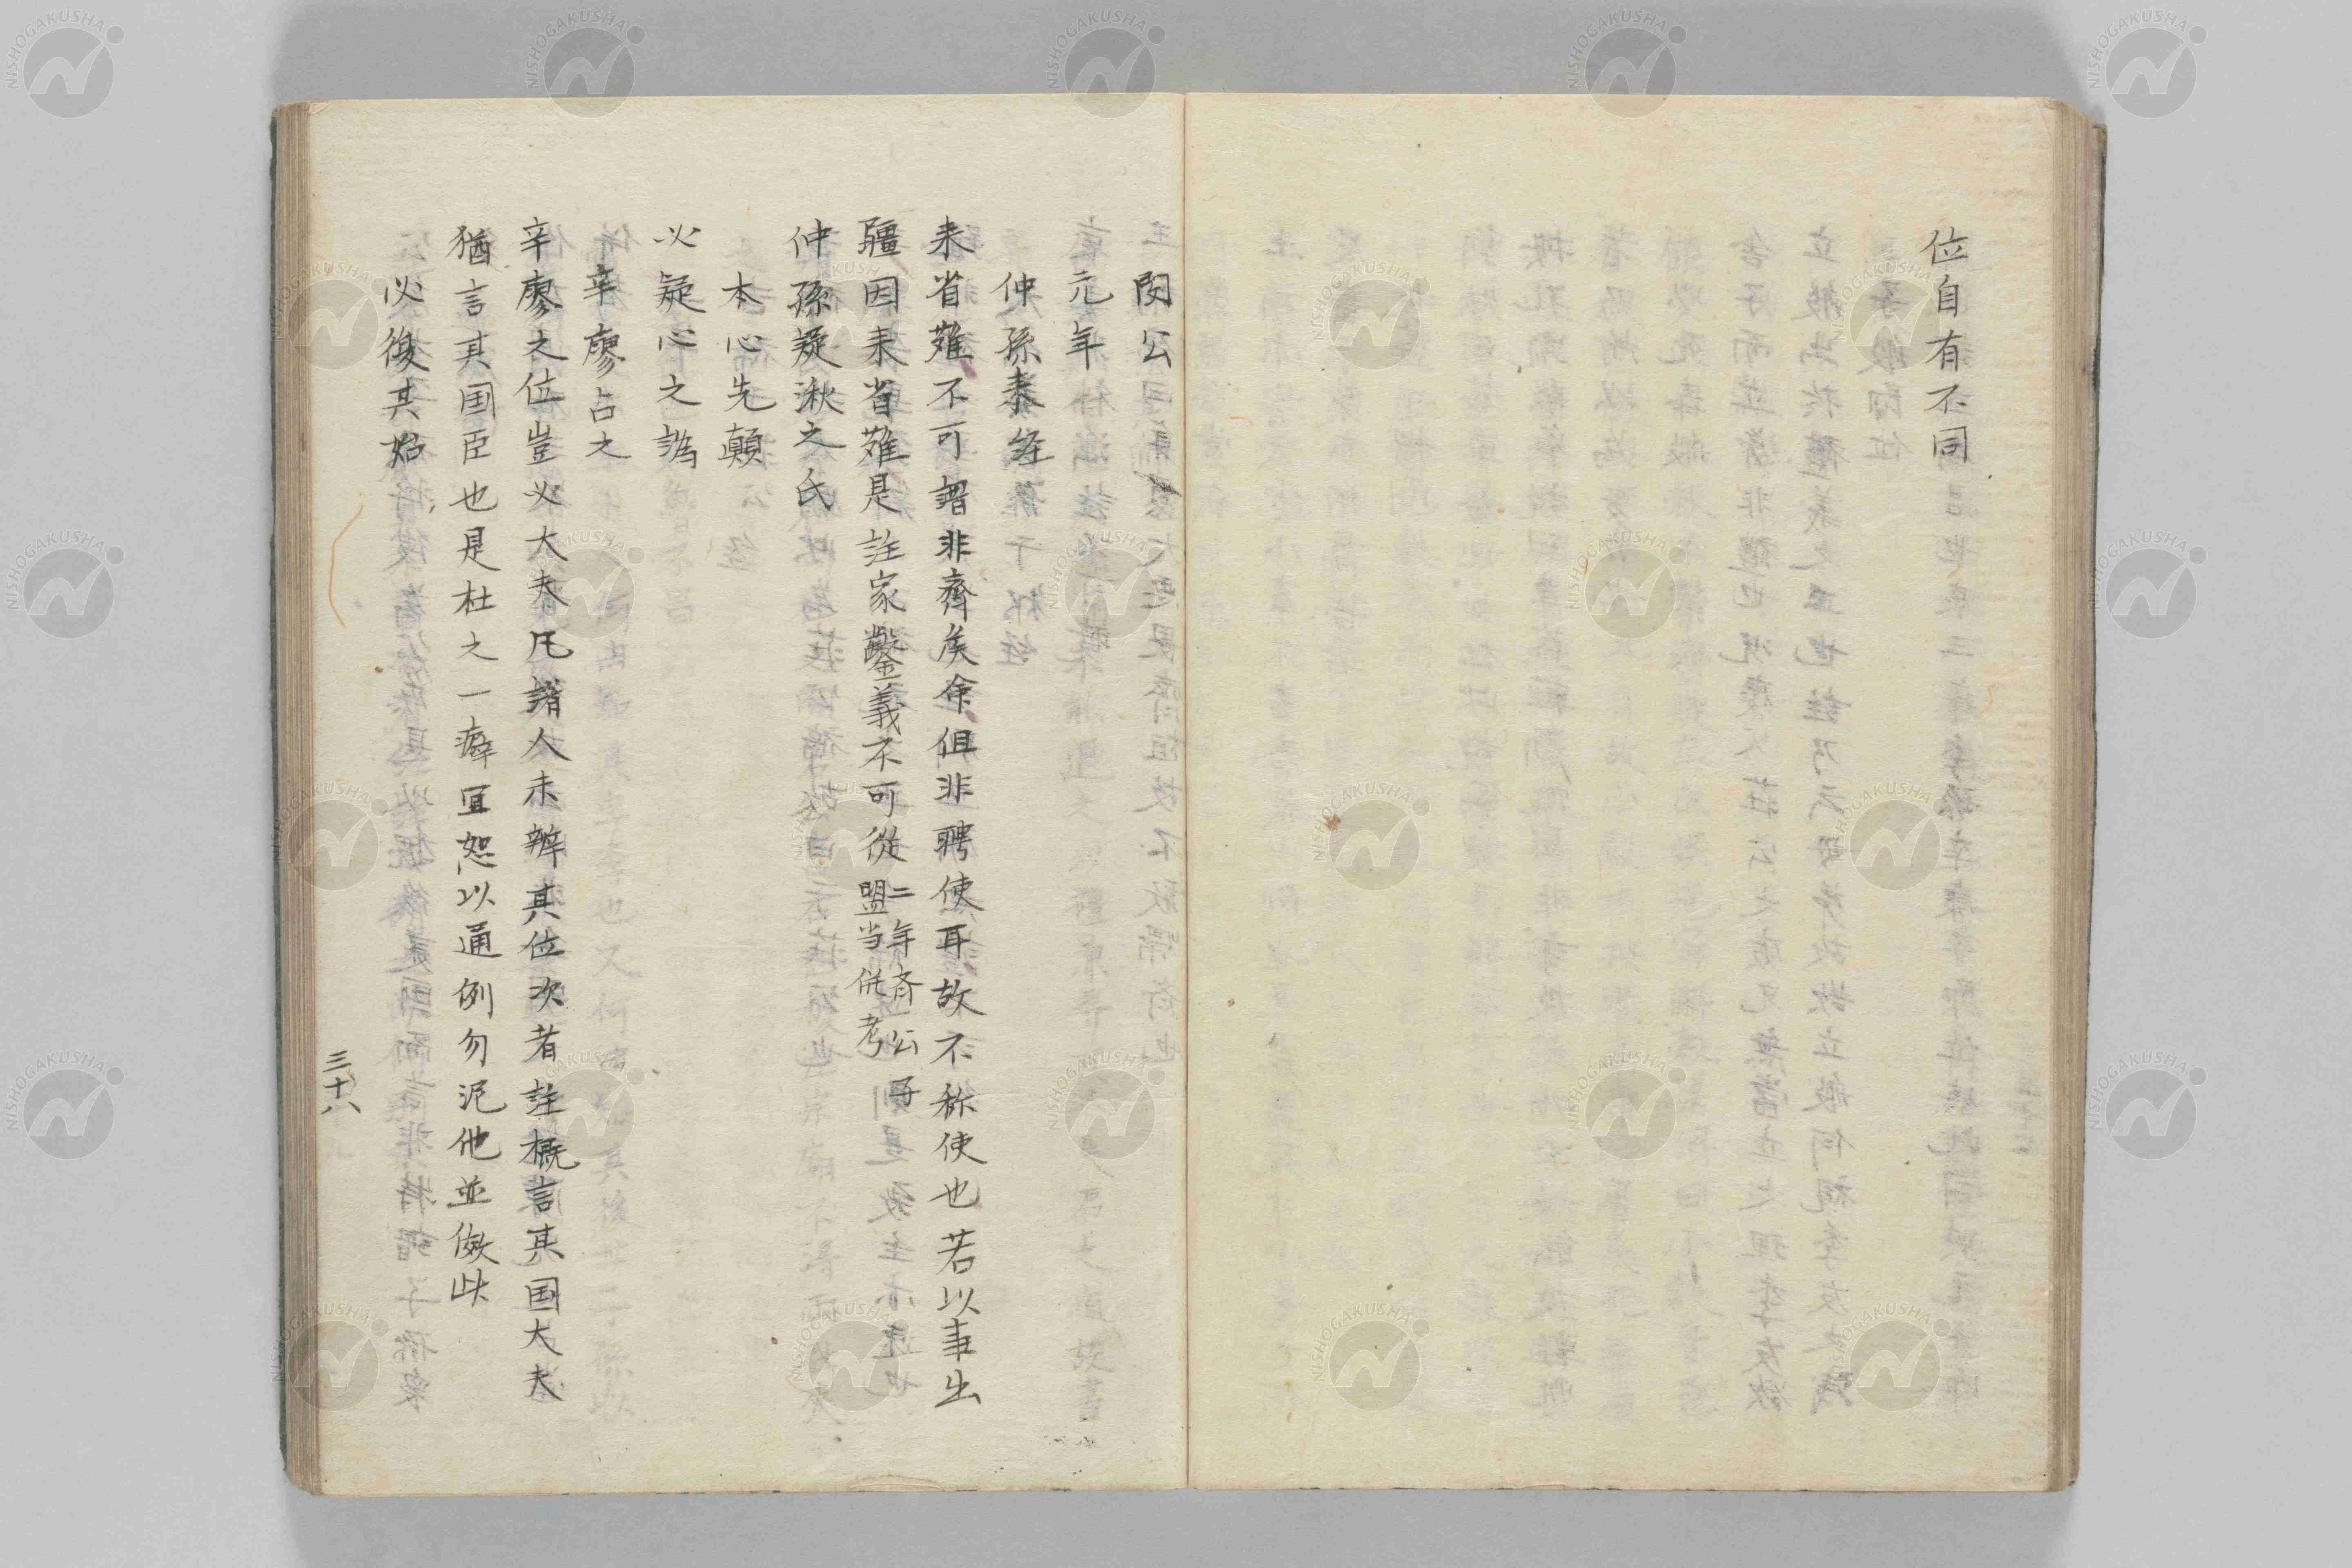 位自有不同
閔公
元年
仲孫来 経
来省難不可謂非齊矦命但非聘使耳故不称使也若以事出
疆因来省難是註家鑿義不可從 二年斉公再盟当併考
仲孫疑湫之氏
本心先顛
必疑心之譌
辛廖占之
辛廖之位豈必大夫凡諸人未辨其位次者註概言其国大夫
猶言其国臣也是杜之一癖宜恕以通例勿泥他並倣此
必復其始
三十八
NISHOGAKUSHA